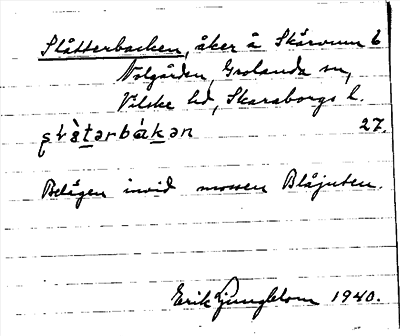 Slåtterbacken, åker å Skårvum 6
Nolgården, Grolanda sn,
Vilske hd, Skaraborgs l.
27.
Belägen invid mossen Blåjuten.
Erik Ljungblom 1940.